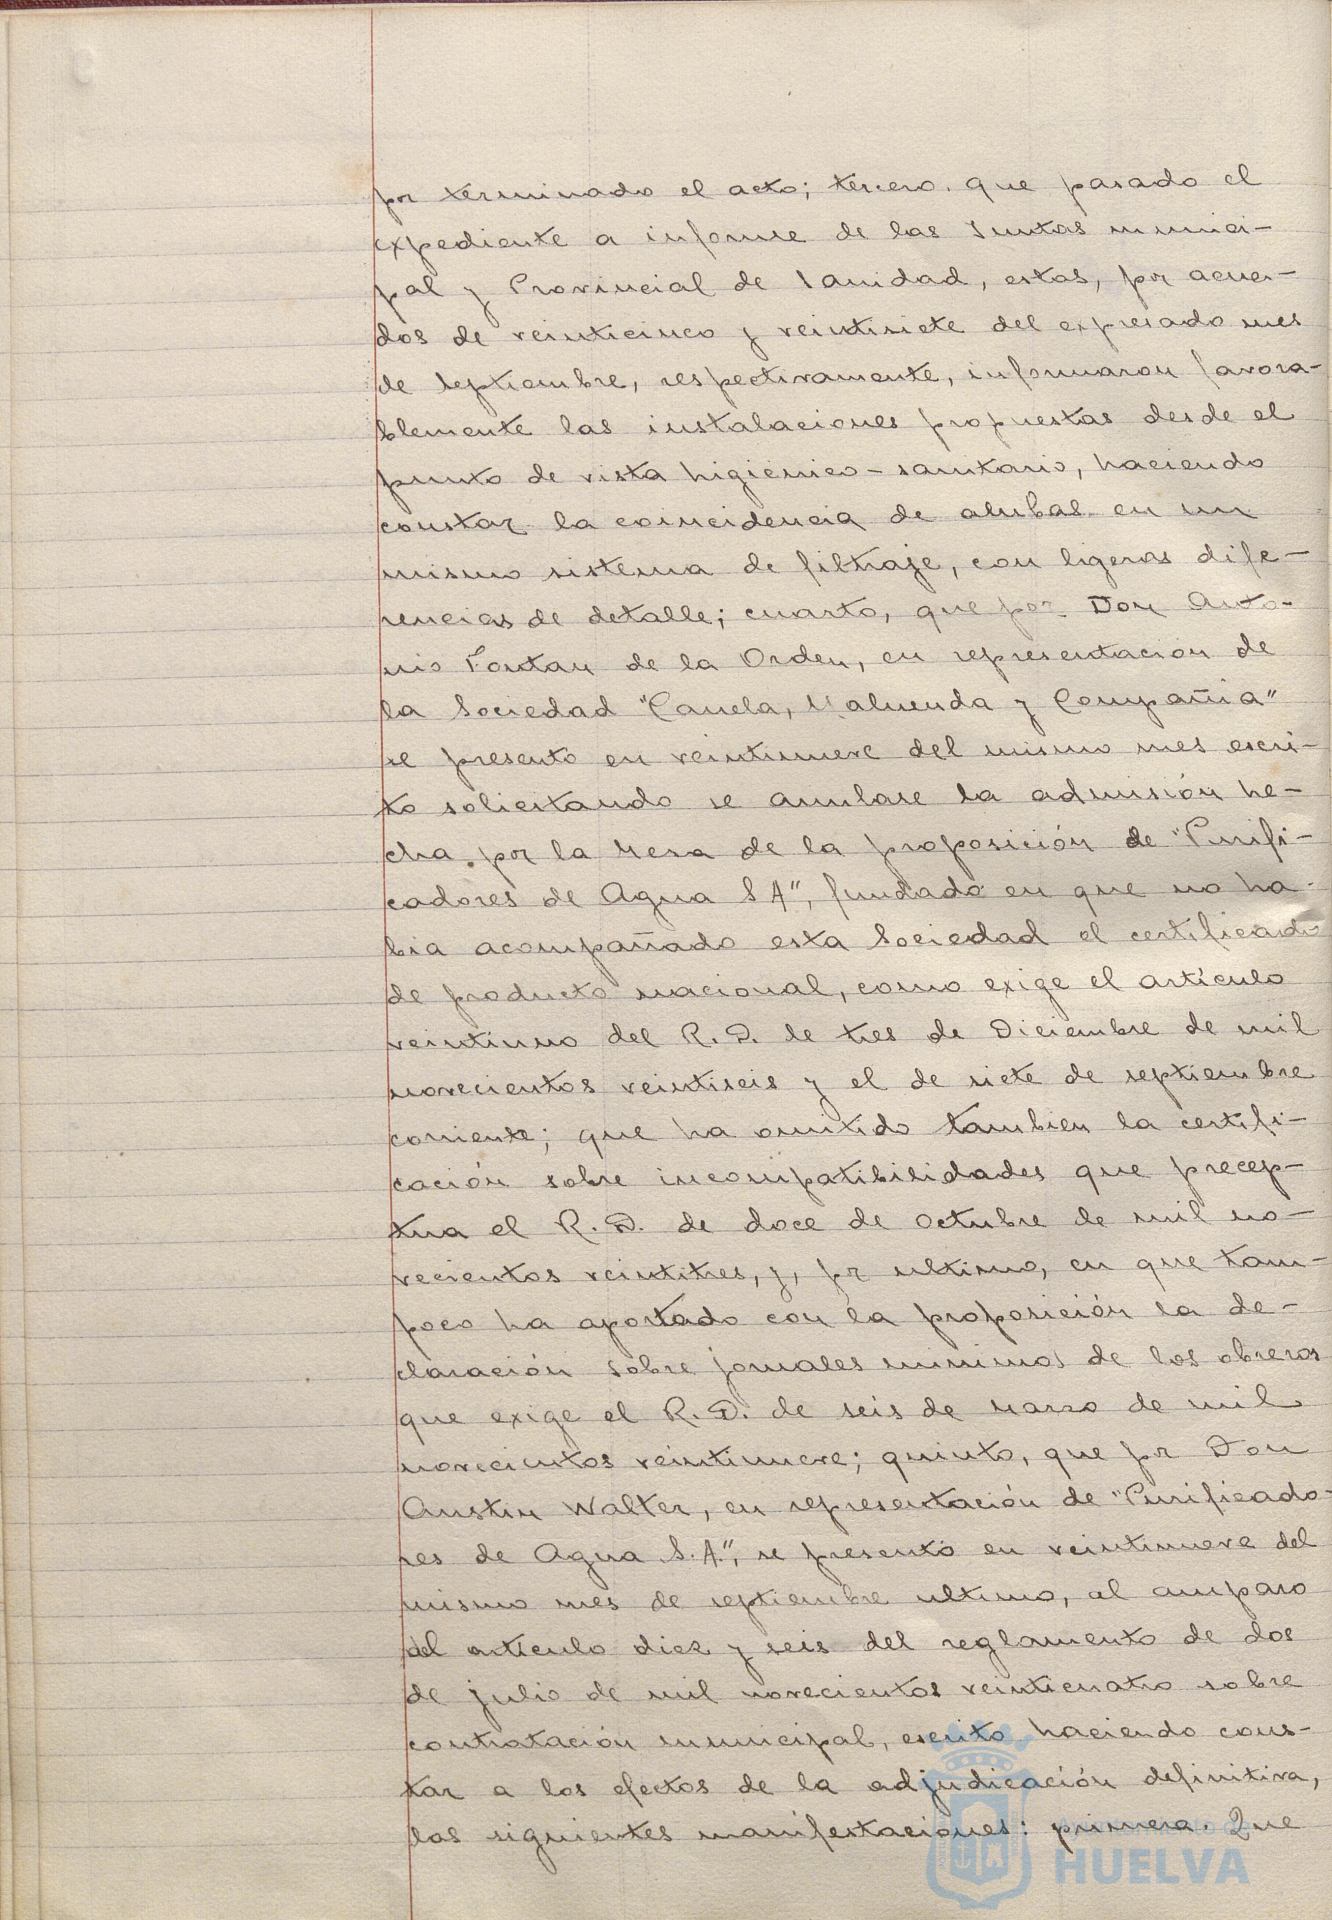 por terminado el acto; tercero. que pasado el
expediente a informe de las Juntas munici-
pal y Provincial de Sanidad, estas, por acuer-
dos de veinticinco y veintisiete del expresado mes
de septiembre, respectivamente, informaron favora-
blemente las instalaciones propuestas desde el
punto de vista higiénico-sanitario, haciendo
constar la coincidencia de ambas en un
mismo sistema de filtraje, con ligeras dife-
rencias de detalle; cuarto, que por Don Anto-
nio Fontan de la Orden, en representación de
la Sociedad "Canela, Maluenda y Compañia"
se presentó en veintinueve del mismo mes escri-
to solicitando se anulase la admisión he-
cha por la Mesa de la proposición de "Purifi-
cadores de Agua S A", fundado en que no ha-
bia acompañado esta Sociedad el certificado
de producto nacional, como exige el artículo
veintiuno del R. D. de tres de Diciembre de mil
novecientos veintiseis y el de siete de septiembre
corriente; que ha omitido tambien la certifi-
cación sobre incompatibilidades que precep-
tua el R. D. de doce de Octubre de mil no-
vecientos veintitres, y, por ultimo, en que tam-
poco ha aportado con la proposición la de-
claración sobre jornales minimos de los obreros
que exige el R. D. de seis de Marzo de mil
novecientos veintinueve; quinto, que por Don
Austin Walter, en representación de "Purificado-
res de Agua S. A.", se presentó en veintinueve del
mismo mes de septiembre ultimo, al amparo
del artículo diez y seis del reglamento de dos
de julio de mil novecientos veinticuatro sobre
contratación municipal, escrito haciendo cons-
tar a los efectos de la adjudicación definitiva,
las siguientes manifestaciones: primera. Que
HUELVA